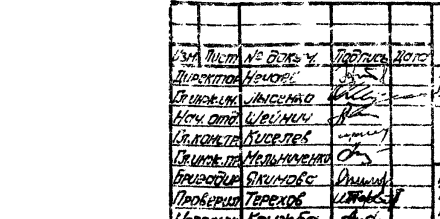 Изм. Лист № докум. Подпись Дата
Директор
Гл.инжин. Лысенко
Нач. отд. Шейнич
Гл.констр. Киселев
Гл.инж.пр. Мельниченко
Бригадир Якимова
Проверил Терехов